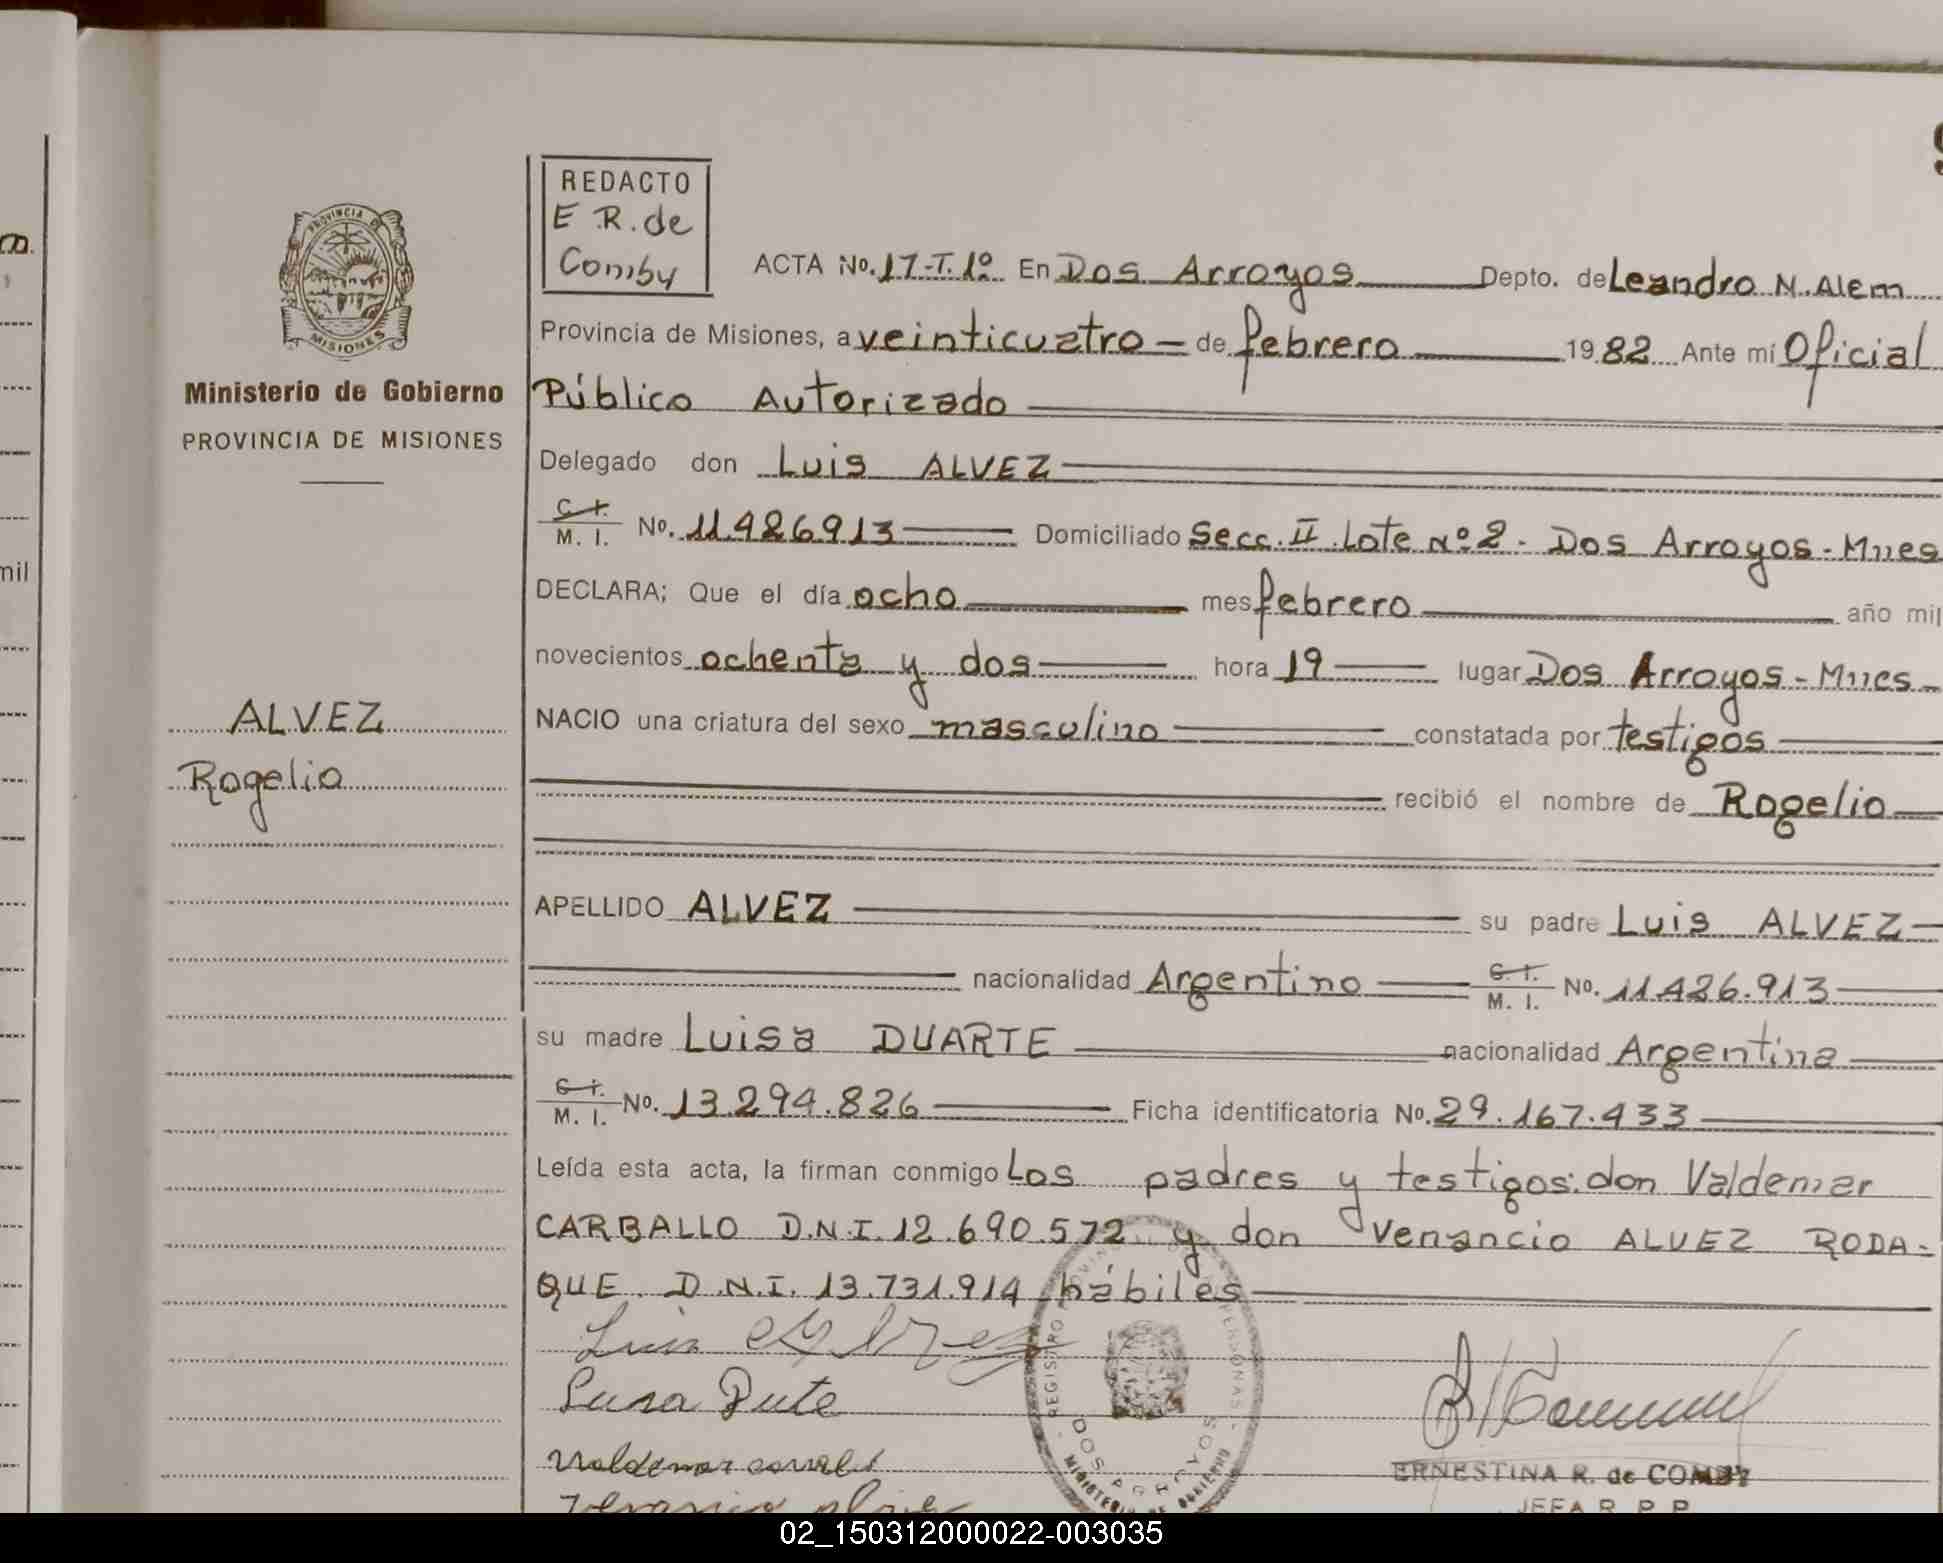 m.
mil
9
REDACTO
E R. de
Comby
PROVINCIA DE
MISIONES
Ministerio de Gobierno
PROVINCIA DE MISIONES
ACTA No. 17-T.1º En Dos Arroyos Depto. de Leandro N. Alem
Provincia de Misiones, a veinticuatro de febrero 1982 Ante mí Oficial
Público Autorizado
Delegado don Luis ALVEZ
C. I.
M. I. No. 11.426.913 Domiciliado Secc. II Lote nº 2 - Dos Arroyos - Mnes
DECLARA; Que el día ocho mes febrero año mil
novecientos ochenta y dos hora 19 lugar Dos Arroyos - Mnes -
ALVEZ
Rogelio
NACIO una criatura del sexo masculino constatada por testigos
recibió el nombre de Rogelio
APELLIDO ALVEZ su padre Luis ALVEZ
nacionalidad Argentino C. I. M. I. No. 11.426.913
su madre Luisa DUARTE nacionalidad Argentina
C. I.
M. I. No. 13.294.826 Ficha identificatoria No. 29.167.433
Leída esta acta, la firman conmigo Los padres y testigos: don Valdemar
CARBALLO D.N.I. 12.690.572 y don Venancio ALVEZ RODA-
QUE D.N.I. 13.731.914 hábiles
REGISTRO PROVINCIAL DE PERSONAS
DOS ARROYOS
MINISTERIO DE GOBIERNO
ERNESTINA R. de COMBY
JEFA R. P. P.
02_150312000022-003035